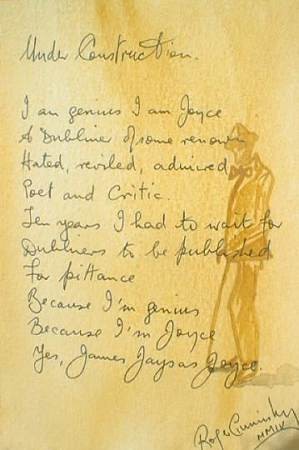 Under Construction.
I am genius I am Joyce
A Dubliner of some renown
Hated, reviled, admired
Poet and Critic.
Ten years I had to wait for
Dubliners to be published
For pittance
Because I'm genius
Because I'm Joyce
Yes, James Jaysas Joyce.
Roger Cummiskey
MMIV